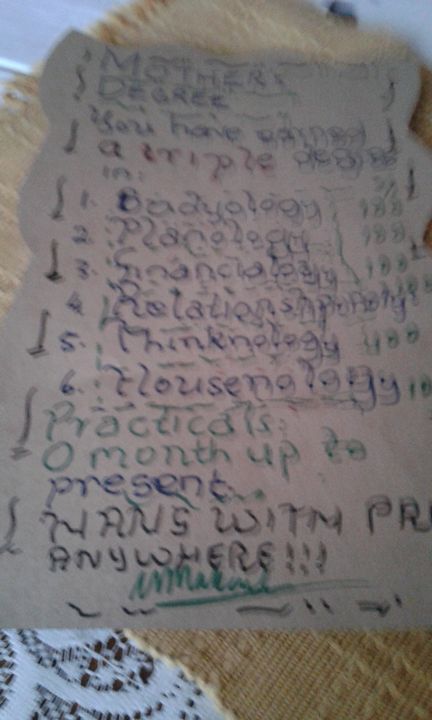 MOTHERS
DEGREE
You have earned
a triple degree
in:
1. Babyology 100
2. Planology 100
3. Financialogy 100
4. Relationshiponoly 100
5. Thinknology 100
6. Housenology 100
Practicals:
0 month up to
present
WITH
ANYWHERE!!!